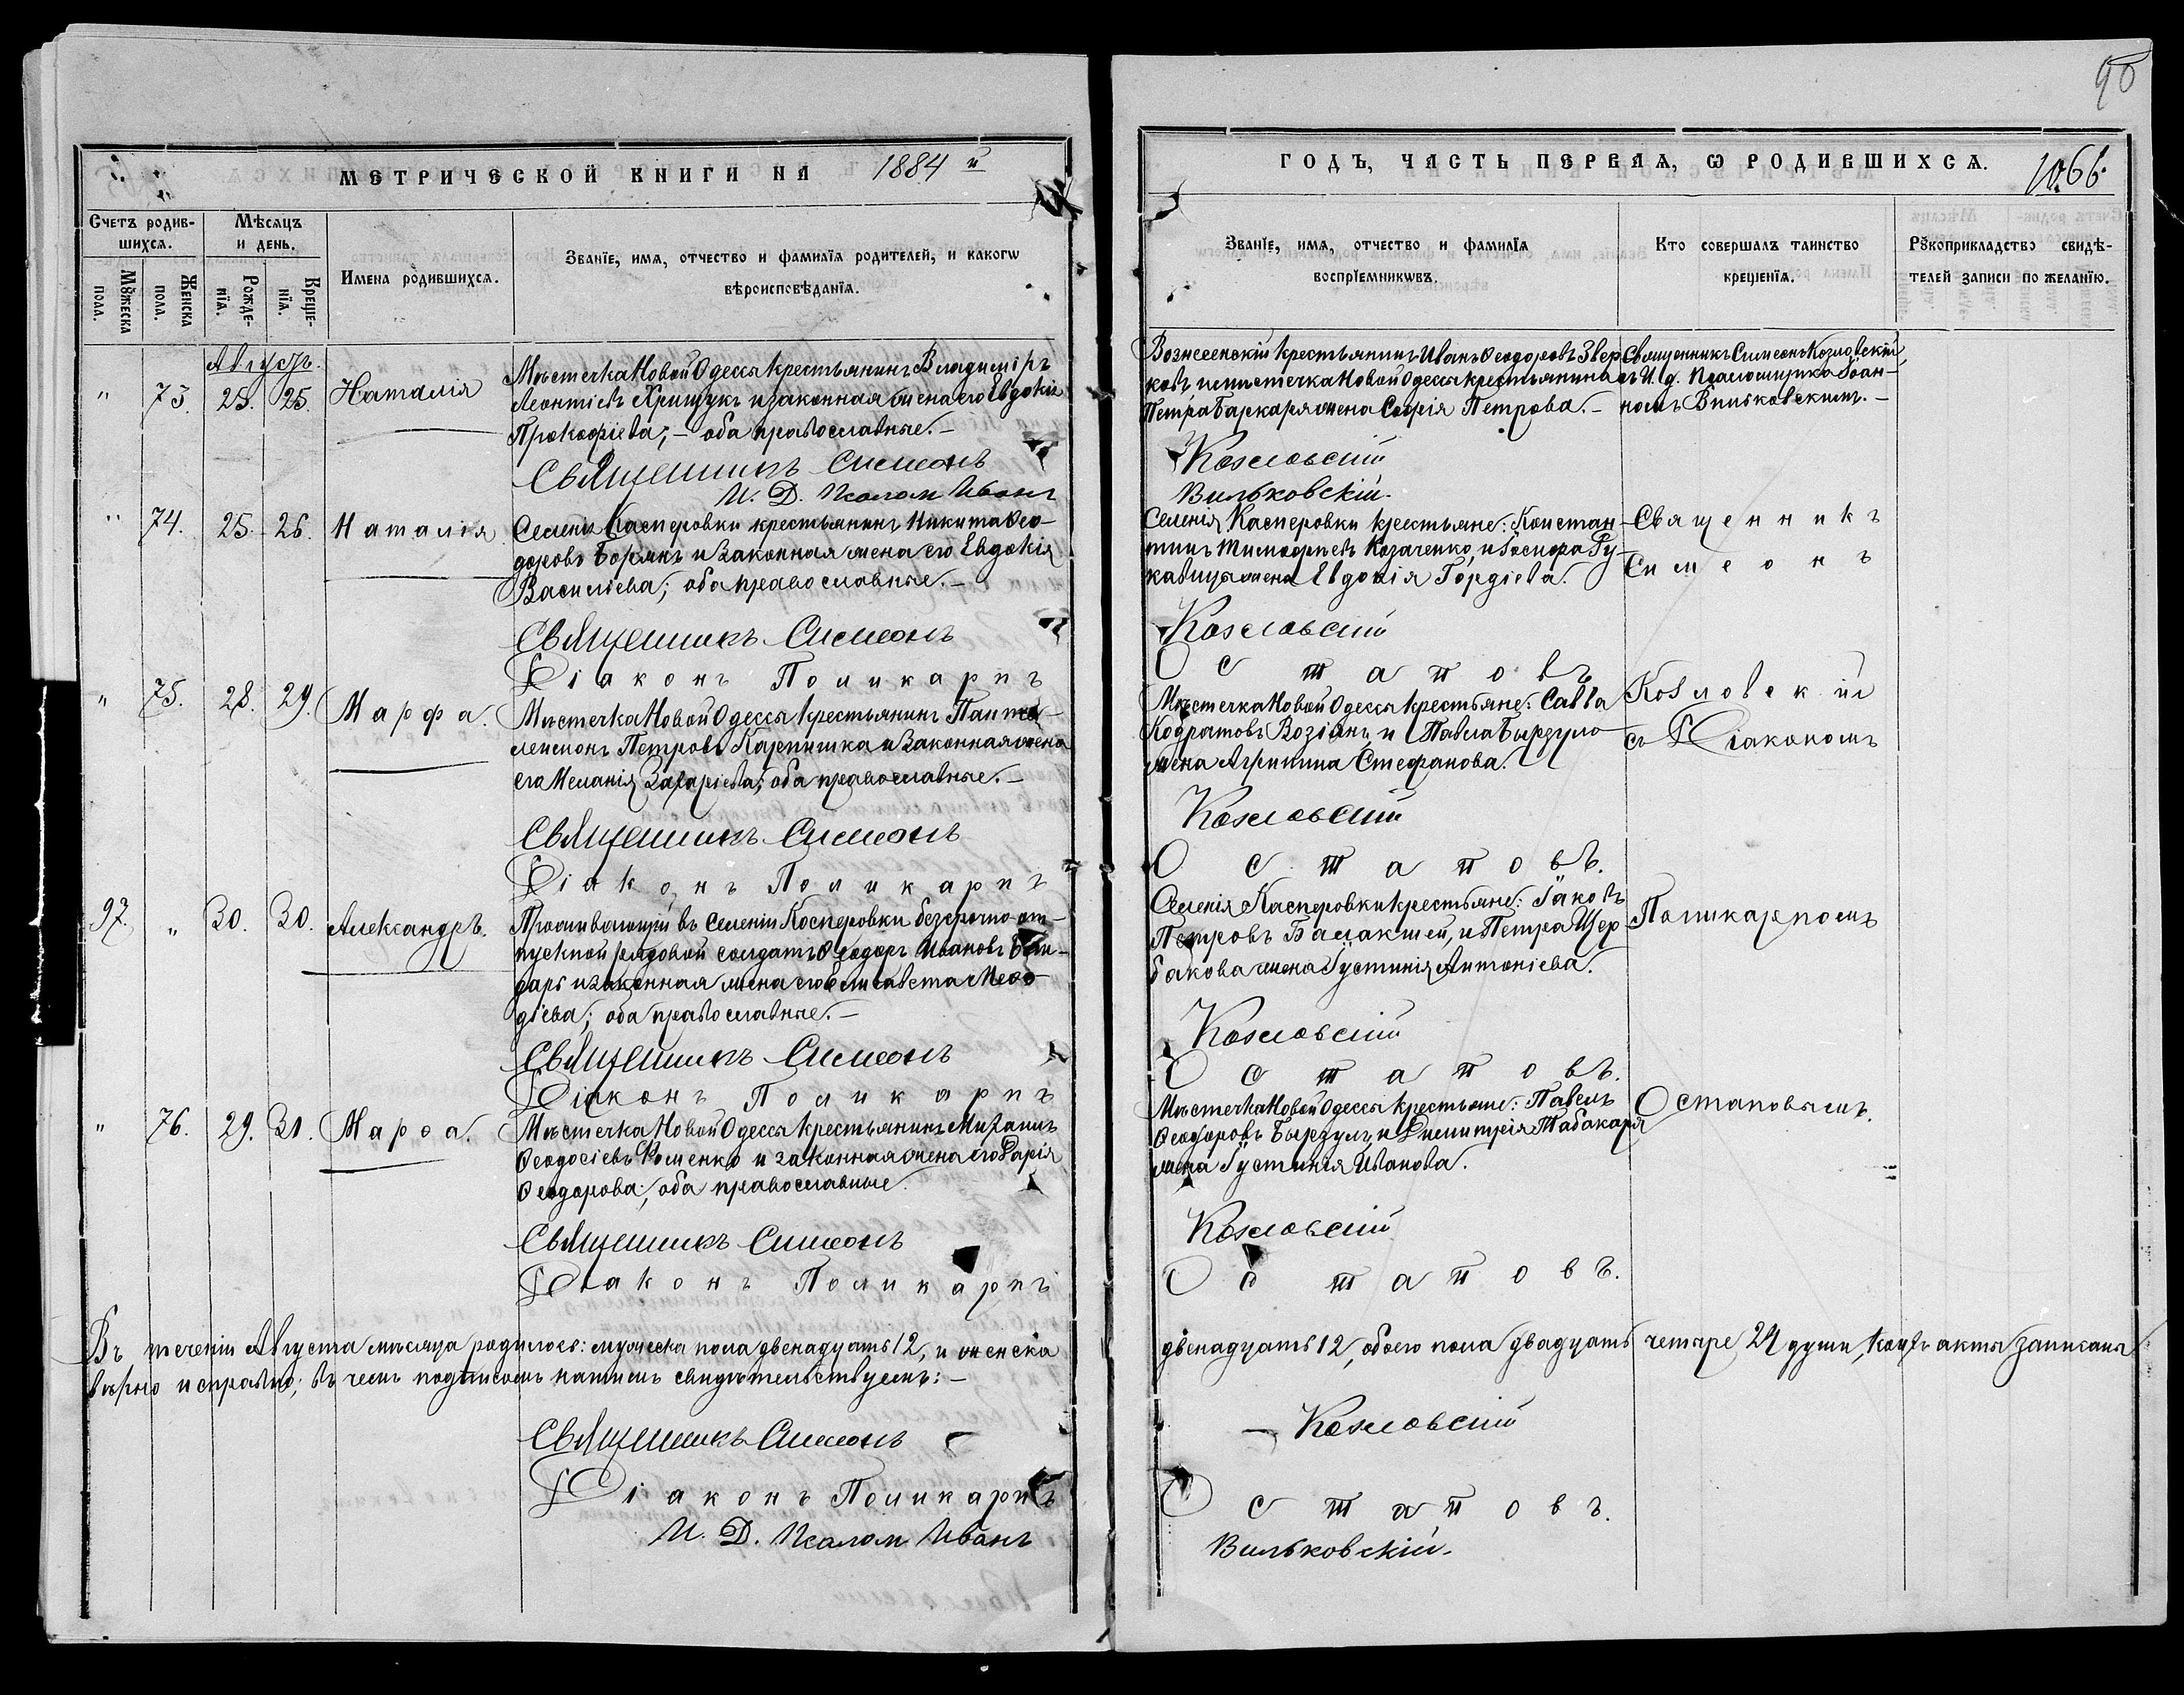 90
МЕТРИЧЕСКОЙ КНИГИ НА 1884 й
ГОДЪ, ЧАСТЬ ПЕРВАЯ, Ѡ РОДИВШИХСѦ.
1066.
Счетъ родив-
шихсѧ.
Мѣсѧцъ
и день.
Мꙋжеска
пола.
Женска
пола.
Рожде-
нїѧ.
Креще-
нїѧ.
Имена родившихсѧ.
Званїе, имѧ, отчество и фамилїѧ родителей, и какогѡ
вѣроисповѣданїѧ.
Званїе, имѧ, отчество и фамилїѧ
воспрїемникѡвъ.
Кто совершалъ таинство
крещенїѧ.
Рꙋкоприкладство свидѣ-
телей записи по желанїю.
Августъ.
" 73. 25. 25. Наталія
Мѣстечка Новой Одессы крестьянинъ Владиміръ
Леонтіевъ Хрищукъ и законная жена его Евдокія
Прокофіева; – оба православные. –
Священникъ Симеонъ
И. Д. Псалом Иванъ
Вознесенскій крестьянинъ Иванъ Ѳеодоровъ Звер
ковъ и мѣстечка Новой Одессы крестьянина
Петра Баркаря жена Софія Петрова. –
Козловскій
Вильковскій.
Священникъ Симеонъ Козловскій,
съ И. д. Псаломщика Іоан-
номъ Вильковскимъ. –
" 74. 25. 26. Наталія
Селенія Касперовки крестьянинъ Никита Ѳео-
доровъ Борянъ и законная жена его Евдокія
Василіева; оба православные. –
Священникъ Симеонъ
Діаконъ Поликарпъ
Селенія Касперовки крестьяне: Констан-
тинъ Тимофѣевъ Козаченко, и Іосифа Ру-
кавицы жена Евдокія Гордіева.
Козловскій
Остаповъ
Священникъ
Симеонъ
" 75. 28. 29. Марфа.
Мѣстечка Новой Одессы крестьянинъ Панте-
леимонъ Петровъ Карпишка и законная жена
его Меланія Захаріева; оба православные. –
Священникъ Симеонъ
Діаконъ Поликарпъ
Мѣстечка Новой Одессы крестьяне: Савва
Кодратовъ Возіянъ, и Павла Бырзула
жена Агрипина Стефанова.
Козловскій
Остаповъ.
Козловскій
съ Діакономъ
97. " 30. 30. Александръ.
Проживающій въ селеніи Касперовки безсрочно-от-
пускной рядовой солдатъ Ѳеодоръ Ивановъ Бон-
дарь и законная жена его Елисавета Меѳо-
діева; оба православные. –
Священникъ Симеонъ
Діаконъ Поликарпъ
Селенія Касперовки крестьяне: Іаковъ
Петровъ Балакшей, и Петра Щер
бакова жена Іустинія Антоніева.
Козловскій
Остаповъ.
Поликарпомъ
" 76. 29. 31. Марѳа.
Мѣстечка Новой Одессы крестьянинъ Михаилъ
Ѳеодосіевъ Фоменко и законная жена его Дарія
Ѳеодорова; оба православные.
Священникъ Симеонъ
Діаконъ Поликарпъ
Мѣстечка Новой Одессы крестьяне: Павелъ
Ѳеодоровъ Бырзулъ, и Димитрія Табакаря
жена Іустинія Иванова.
Козловскій
Остаповъ.
Остаповымъ.
Въ теченіи Августа мѣсяца родилось: мужеска пола двенадцать 12, и женска двенадцать 12, обоего пола двадцать четыре 24 души, коихъ акты записаны
вѣрно и справно; въ чемъ подписомъ нашимъ свидѣтельствуемъ: –
Священникъ Симеонъ Козловскій
Діаконъ Поликарпъ Остаповъ.
И. Д. Псалом Иванъ Вильковскій.